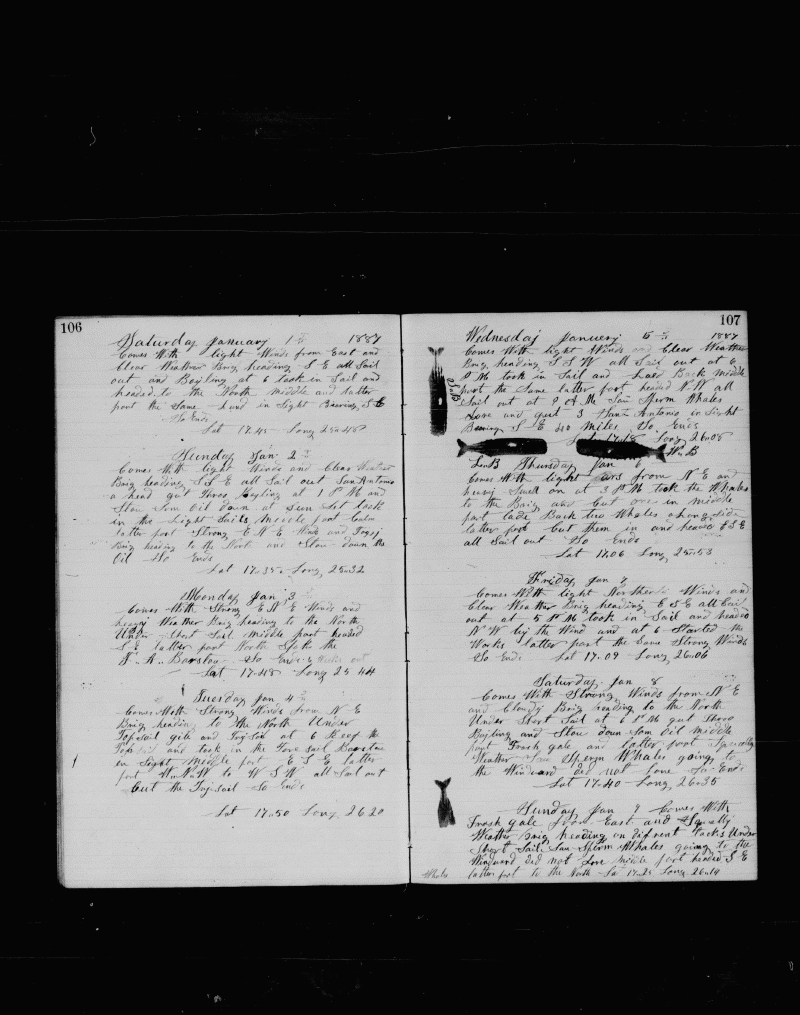 106
Saturday January 1st 1887
Comes With light Winds from East and
Clear Weather Brig heading S E all Sail
out and Boyling at 6 took in Sail and
headed to the North middle and latter
part the Same Land in Sight Bearing S E
So Ends
Lat 17.45 Long 25.48
Sunday Jan 2
Comes With light Winds and Clear Weather
Brig heading S E all Sail out San Antonio
a head gut throo Boyling at 1 P M and
Stow Som Oil down at Sun Set took
in the Light Sails Middle part Calm
latter part Strong E N E Wind and Foggy
Brig heading to the North and Stow down the
Oil So Ends
Lat 17.35 Long 25.32
Monday Jan 3
Comes With Strong E N E Winds and
heavy Weather Brig heading to the North
Under Short Sail Middle part headed
S E latter part North Spok the
F. A. Barstow So Ends
Lat 17.48 Long 25 44
Tuesday Jan 4
Comes With Strong Winds from N E
Brig heading to the North Under
Topsail and at 6 the
Topsail and took in the Foresail Barstow
in Sight Middle part E S E latter
part to W S W all Sail out
but the Topsail So Ends
Lat 17.50 Long 26 20
107
Wednesday January 5 1887
Comes With light Winds and Clear Weather
Brig heading S S W all Sail out at 6
P M took in Sail and Back middle
part the Same latter part headed N W all
Sail out at 9 A M San Sperm Whales
Lore and gut 3 Antonio in Sight
Bearing S E miles So Ends
Lat 17.18 Long 26.08
L.B W.B
Thursday Jan 6
Comes With light from N E and
Swell on at 3 P M took the Whales
to the Brig and Cut one in middle
part Back two Whales along side
latter part Cut them in and headed E S E
all Sail out So Ends
Lat 17.06 Long 25.53
Friday Jan 7
Comes With light Northern Winds and
Clear Weather Brig heading E S E all Sail
out at 5 P M took in Sail and headed
N W by the Wind and at 6 Started the
Works latter part the Same Strong Winds
So Ends Lat 17.09 Long 26.06
Saturday Jan 8
Comes With Strong Winds from N E
and Cloudy Brig heading to the North
Under Short Sail at 6 P M gut throo
Boyling and Stow down Som Oil middle
part Frash gale and latter part Squally
Weather Sperm Whales going to
the Windward did not Lore So Ends
Lat 17.40 Long 26.35
Sunday Jan 9 Comes With
Frash gale from East and Squally
Weather Brig heading on difrent tacks Under
Short Sail San Sperm Whales going to the
Windward did not Lore middle part headed S E
latter part to the North Lat 17.25 Long 26.19
Whales